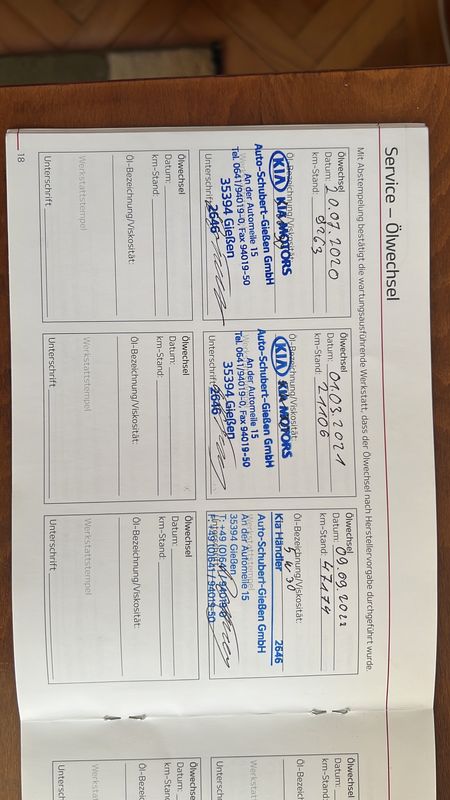 Service – Ölwechsel
Mit Abstempelung bestätigt die wartungsausführende Werkstatt, dass der Ölwechsel nach Herstellervorgabe durchgeführt wurde.
Ölwechsel
Datum: 20.07.2020
km-Stand:
Öl-Bezeichnung/Viskosität:
KIA KIA MOTORS
Auto-Schubert-Gießen GmbH
An der Automeile 15
35394 Gießen
Tel. 0641/94019-0, Fax 94019-50
Unterschrift 2646
Ölwechsel
Datum: 01.03.2021
km-Stand: 21106
Öl-Bezeichnung/Viskosität:
KIA KIA MOTORS
Auto-Schubert-Gießen GmbH
An der Automeile 15
35394 Gießen
Tel. 0641/94019-0, Fax 94019-50
Unterschrift 2646
Ölwechsel
Datum: 09.09.2022
km-Stand: 47174
Öl-Bezeichnung/Viskosität:
5W30
Kia-Händler 2646
Auto-Schubert-Gießen GmbH
An der Automeile 15
35394 Gießen
T: +49 (0)641 / 94019-0
F: +49 (0)641 / 94019-50
Ölwechsel
Datum:
km-Stand:
Öl-Bezeichnung/Viskosität:
Werkstattstempel
Unterschrift
Ölwechsel
Datum:
km-Stand:
Öl-Bezeichnung/Viskosität:
Werkstattstempel
Unterschrift
Ölwechsel
Datum:
km-Stand:
Öl-Bezeichnung/Viskosität:
Werkstattstempel
Unterschrift
18
Ölwechsel
Datum:
km-Stand:
Ölwechsel
Datum:
km-Stand: